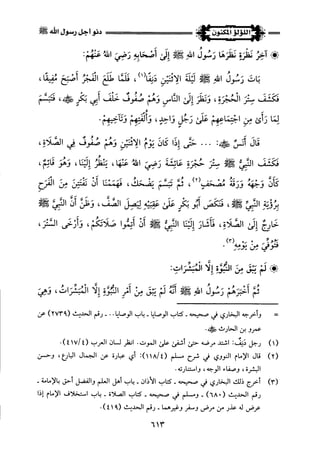 اللؤلؤ المكنون
دنو أجل رسول الله ﷺ
* آخِرُ نَظْرَةٍ نَظَرَهَا رَسُولُ اللهِ ﷺ إِلَى أَصْحَابِهِ رَضِيَ اللهُ عَنْهُمْ:
بَاتَ رَسُولُ اللهِ ﷺ لَيْلَةَ الِاثْنَيْنِ دَنِفًا(١)، فَلَمَّا طَلَعَ الْفَجْرُ أَصْبَحَ مُفِيقًا،
فَكَشَفَ سِتْرَ الْحُجْرَةِ، وَنَظَرَ إِلَى النَّاسِ وَهُمْ صُفُوفٌ خَلْفَ أَبِي بَكْرٍ ﷺ، فَتَبَسَّمَ
لِمَا رَأَى مِنِ اجْتِمَاعِهِمْ عَلَى رَجُلٍ وَاحِدٍ، وَأُلْفَتِهِمْ وَتَآخِيهِمْ.
قَالَ أَنَسٌ: ... حَتَّى إِذَا كَانَ يَوْمُ الِاثْنَيْنِ وَهُمْ صُفُوفٌ فِي الصَّلَاةِ،
فَكَشَفَ النَّبِيُّ ﷺ سِتْرَ حُجْرَةِ عَائِشَةَ رَضِيَ اللهُ عَنْهَا، يَنْظُرُ إِلَيْنَا، وَهُوَ قَائِمٌ،
كَأَنَّ وَجْهَهُ وَرَقَةُ مُصْحَفٍ(٢)، ثُمَّ تَبَسَّمَ يَضْحَكُ، فَهَمَمْنَا أَنْ نَفْتَتِنَ مِنَ الْفَرَحِ
بِرُؤْيَةِ النَّبِيِّ ﷺ، فَنَكَصَ أَبُو بَكْرٍ عَلَى عَقِبَيْهِ لِيَصِلَ الصَّفَّ، وَظَنَّ أَنَّ النَّبِيَّ ﷺ
خَارِجٌ إِلَى الصَّلَاةِ، فَأَشَارَ إِلَيْنَا النَّبِيُّ ﷺ أَنْ أَتِمُّوا صَلَاتَكُمْ، وَأَرْخَى السِّتْرَ،
فَتُوُفِّيَ مِنْ يَوْمِهِ(٣).
* لَمْ يَبْقَ مِنَ النُّبُوَّةِ إِلَّا الْمُبَشِّرَاتُ:
ثُمَّ أَخْبَرَهُمْ رَسُولُ اللهِ ﷺ أَنَّهُ لَمْ يَبْقَ مِنْ أَمْرِ النُّبُوَّةِ إِلَّا الْمُبَشِّرَاتُ، وَهِيَ
= وأخرجه البخاري في صحيحه ـ كتاب الوصايا ـ باب الوصايا.. ـ رقم الحديث (٢٧٣٩) عن
عمرو بن الحارث
(١) رجل دَنِفٌ: اشتد مرضه حتى أشفى على الموت. انظر لسان العرب (٤١٧/٤).
(٢) قال الإمام النووي في شرح مسلم (١١٨/٤): أي عبارة عن الجمال البارع، وحسن
البشرة، وصفاء الوجه، واستنارته.
(٣) أخرج ذلك البخاري في صحيحه ـ كتاب الأذان ـ باب أهل العلم والفضل أحق بالإمامة ـ
رقم الحديث (٦٨٠) ـ ومسلم في صحيحه ـ كتاب الصلاة ـ باب استخلاف الإمام إذا
عرض له عذر من مرض وسفر وغيرهما ـ رقم الحديث (٤١٩).
٦١٣